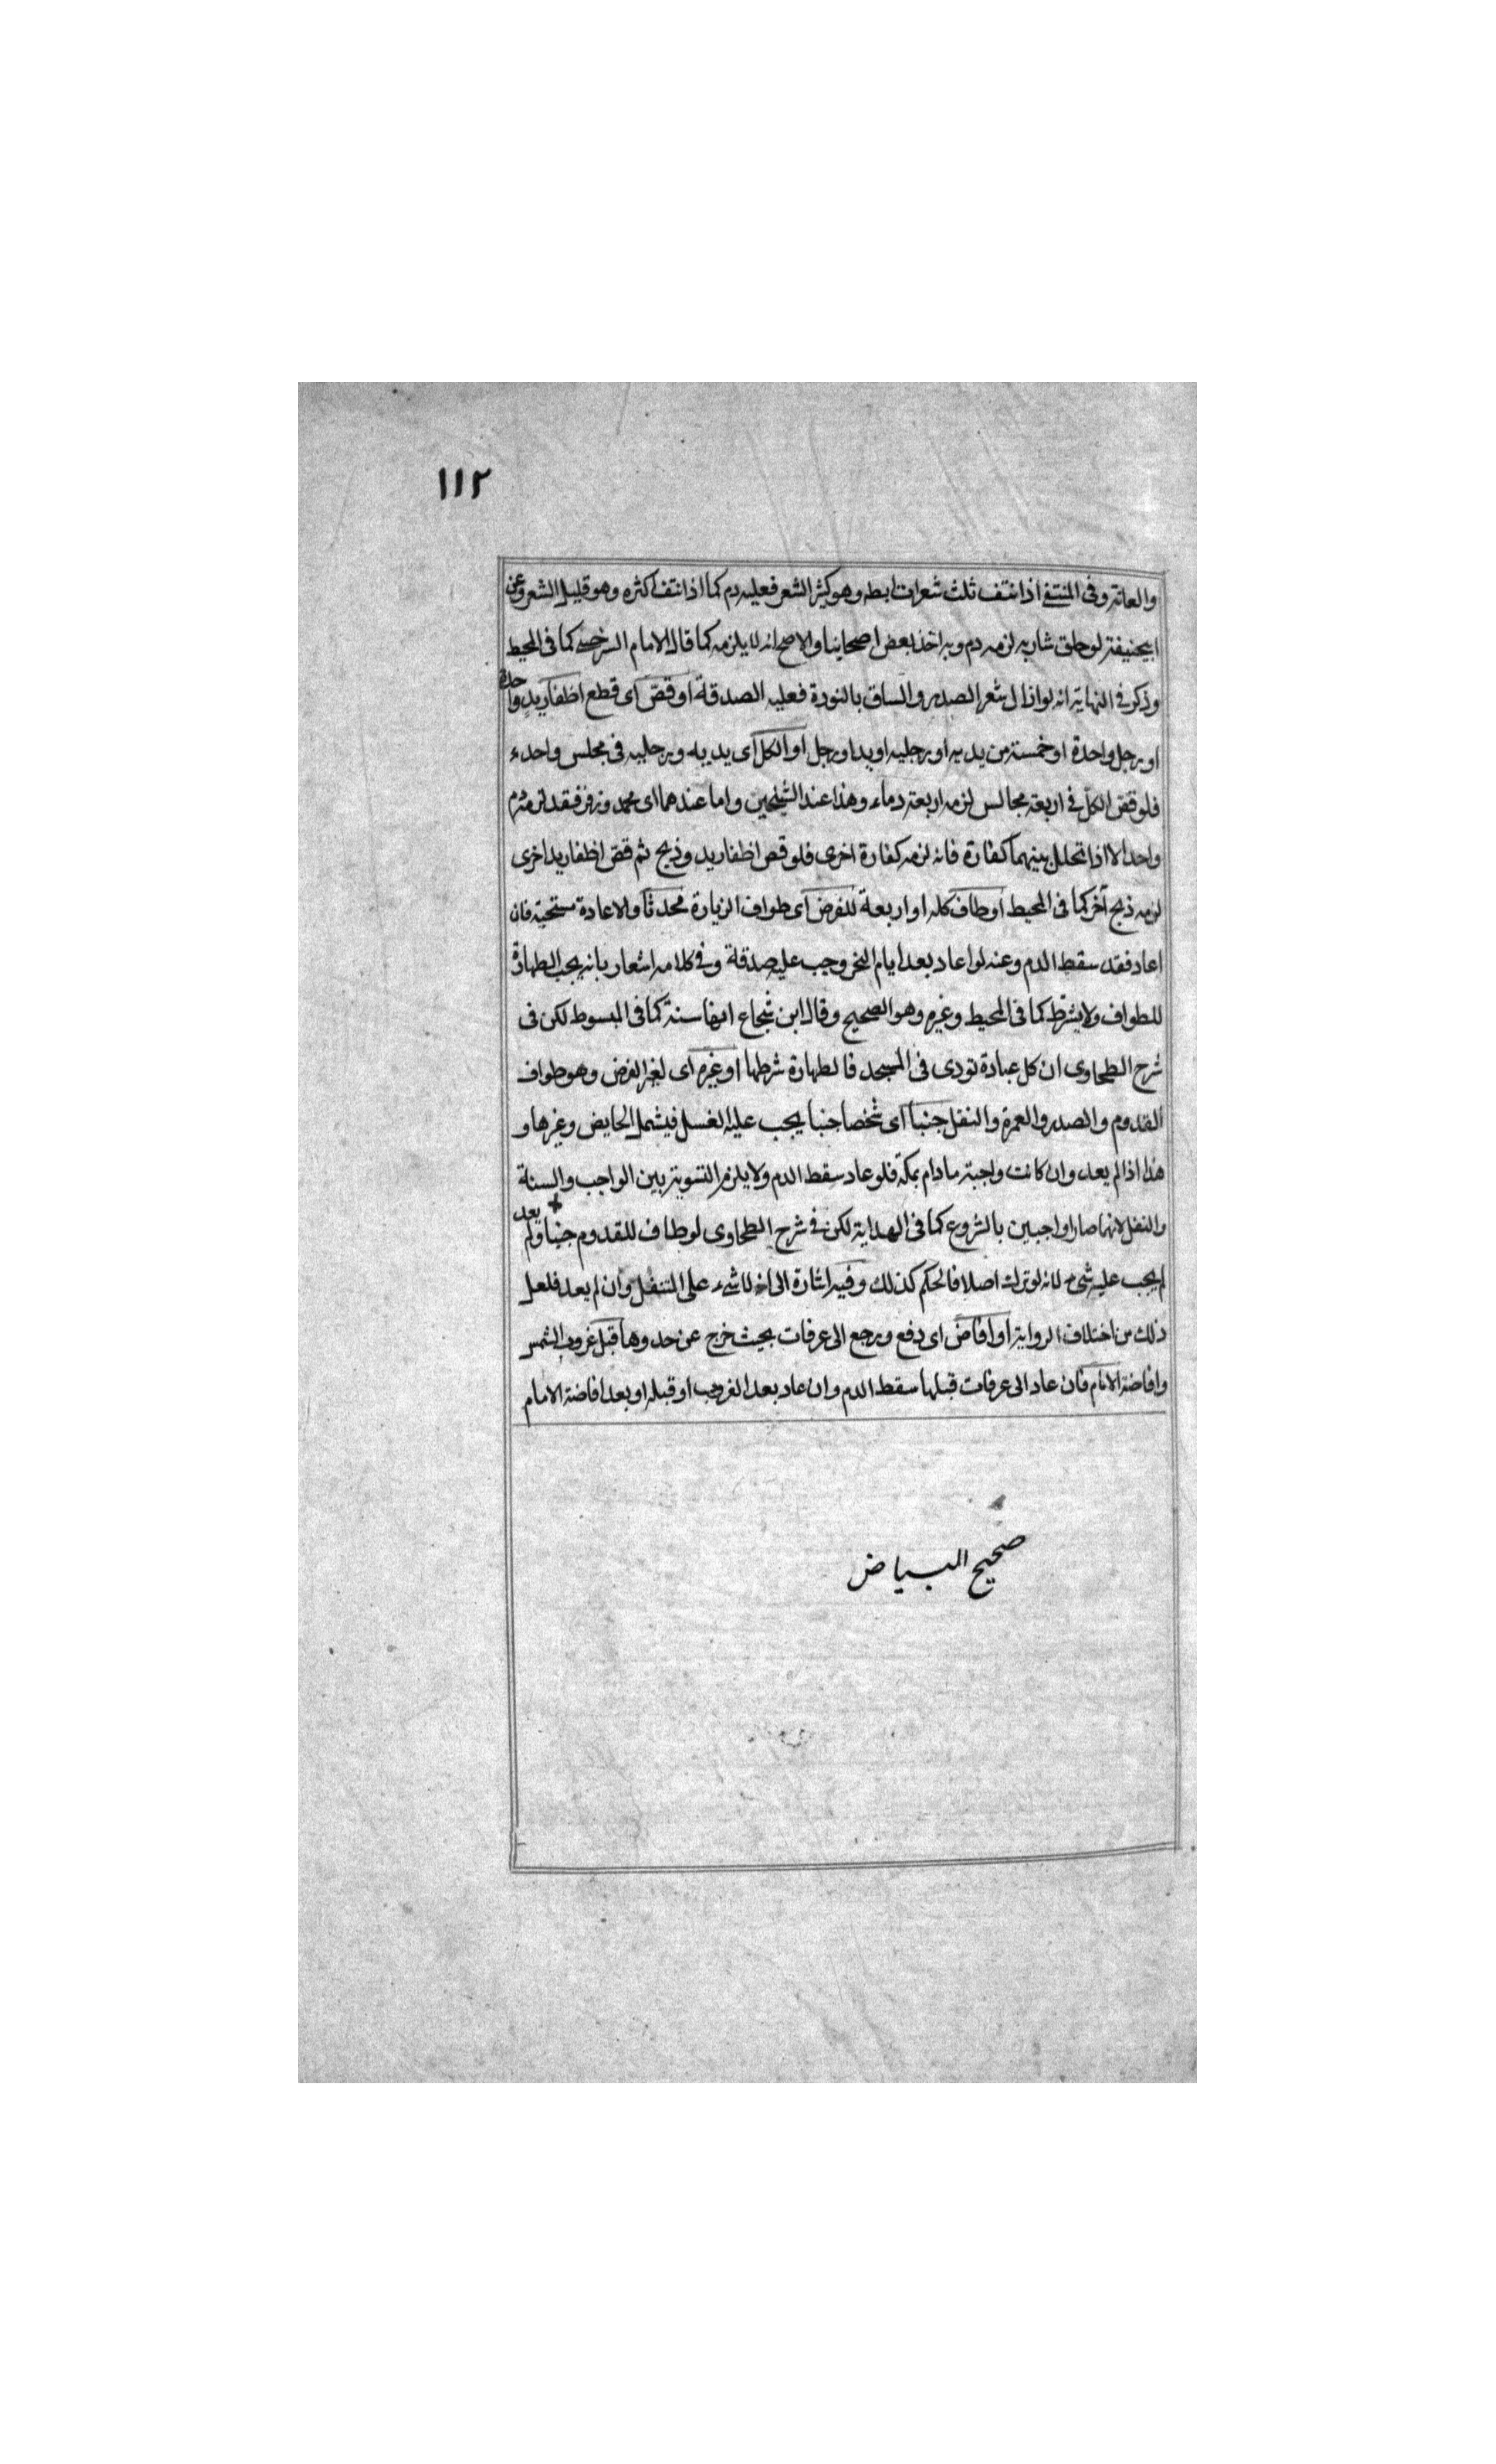 ١١٢
والعانة وفى المنتقى اذا نتف ثلث شعرات ابطه وهو كثير الشعر فعليه دم كما اذا نتف اكثره وهو قليل الشعر وعن
ابيحنيفة لو حلق شاربه لزمه دم وبه اخذ بعض اصحابنا والاصح انه لا يلزمه كما قال الامام السرخسى كما فى المحيط
وذكر فى النهاية انه لو ازال شعر الصدر والساق بالنورة فعليه الصدقة او قصّ اى قطع اظفار يد واحدة
او رجل واحدة او خمسة من يديه او رجليه او يد او رجل او الكل اى يديه ورجليه فى مجلس واحد
فلو قصّ الكلّ فى اربعة مجالس لزمه اربعة دماء وهذا عند الشيخين واما عندهما اى محمد وزفر فقد لزمه دم
واحد الا اذا تخلل بينهما كفارة فانه لزمه كفارة اخرى فلو قص اظفار يد وذبح ثم قصّ اظفار يد اخرى
لزمه ذبح آخر كما فى المحيط او طاف كله او اربعة للفرض اى طواف الزيارة محدثا والاعادة مستحبة فان
اعاد فقد سقط الدم وعنه لو اعاد بعد ايام النحر وجب عليه صدقة وفى كلامه اشعار بانه يجب الطهارة
للطواف ولا يشترط كما فى المحيط وغيره وهو الصحيح وقال ابن شجاع انها سنة كما فى المبسوط لكن فى
شرح الطحاوى ان كل عبادة تودى فى المسجد فالطهارة شرطها او غيره اى لغير الفرض وهو طواف
القدوم والصدر والعمرة والنفل جنبا اى شخصا جنبا يجب عليه الغسل فيشمل الحايض وغيرها و
هذا اذا لم يعد وان كانت واجبة ما دام بمكة فلو عاد سقط الدم ولا يلزم التسوية بين الواجب والسنة
والنفل لانهما صارا واجبين بالشروع كما فى الهداية لكن فى شرح الطحاوى لو طاف للقدوم جنبا ولم يعد
لم يجب عليه شىء لانه لو ترك اصلا فالحكم كذلك وفيه اشارة الى انه لا شىء على المتنفل وان لم يعد فلعل
ذلك من اختلاف الرواية او افاض اى دفع ورجع الى عرفات بحيث خرج عن حدودها قبل غروب الشمس
وافاضة الامام فان عاد الى عرفات قبلها سقط الدم وان عاد بعد الغروب او قبله او بعد افاضة الامام
صحيح البياض